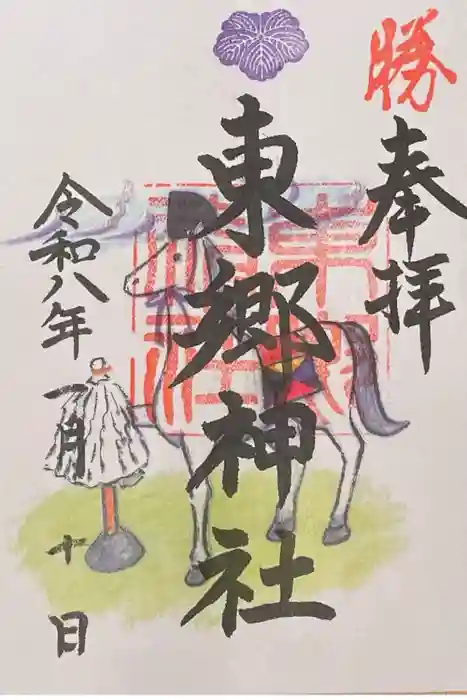 勝
奉拝
東郷神社
東郷神社
令和八年一月十日